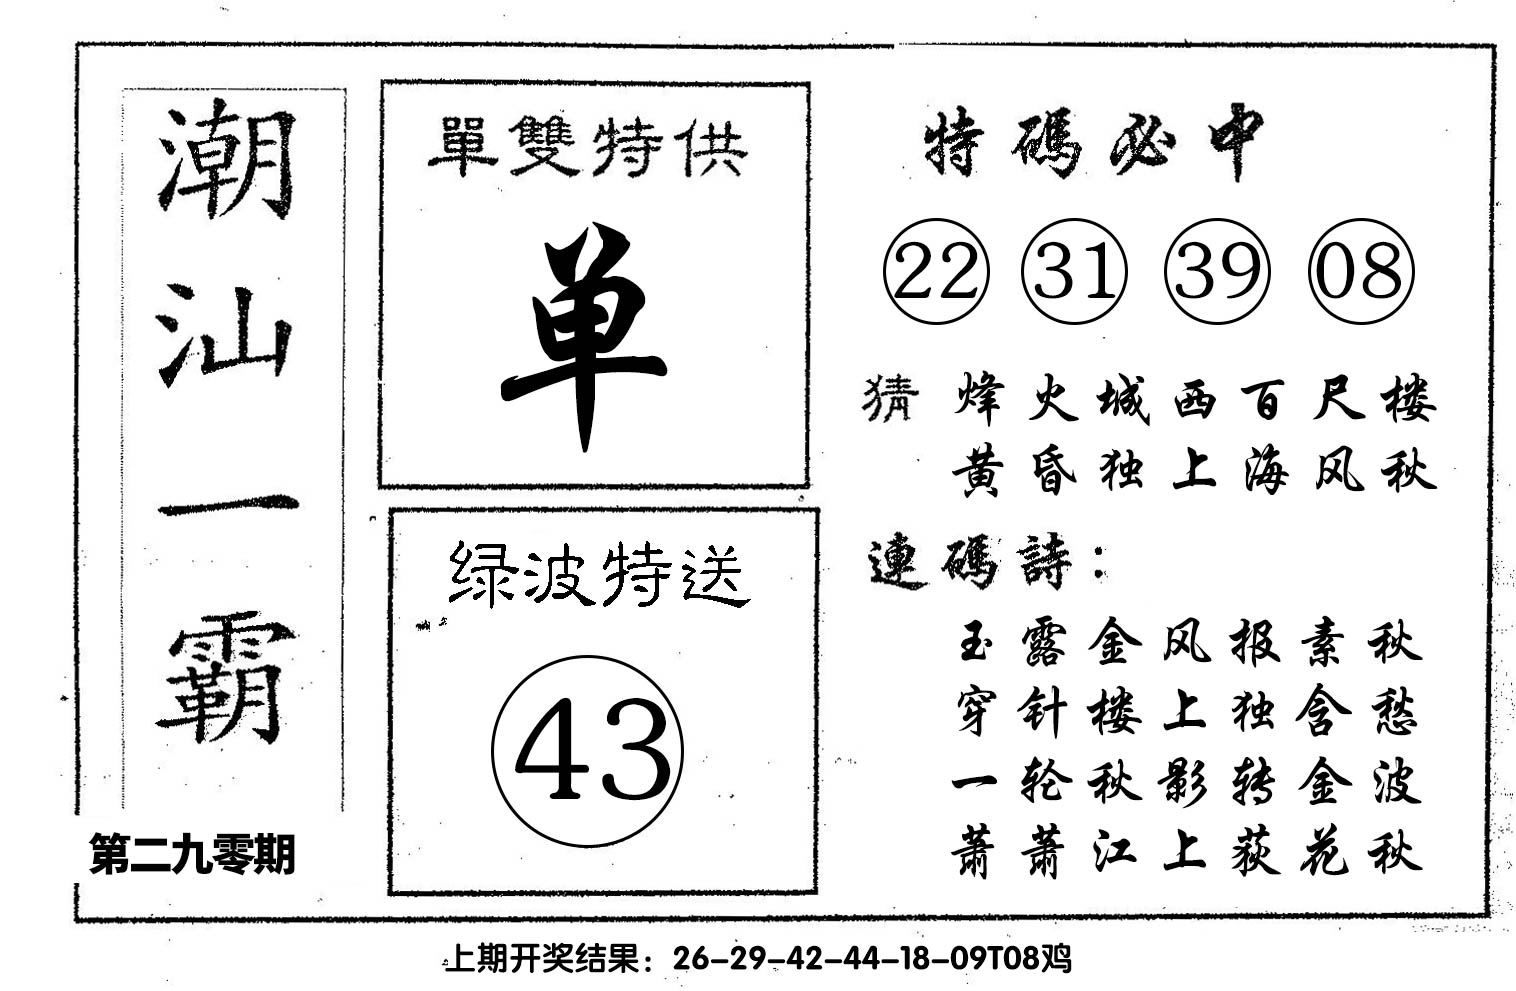 潮汕一霸
第二九零期
單雙特供
单
绿波特送
43
特碼必中
22 31 39 08
猜 烽火城西百尺楼
黄昏独上海风秋
連碼詩：
玉露金风报素秋
穿针楼上独含愁
一轮秋影转金波
萧萧江上荻花秋
上期开奖结果：26-29-42-44-18-09T08鸡